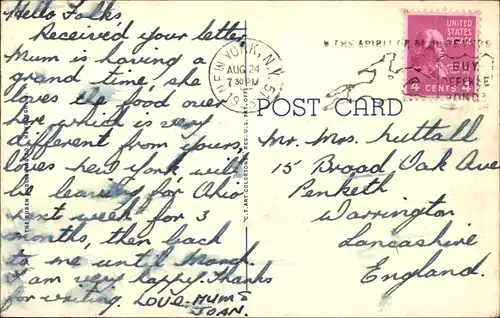 Hello Folks
Received your letter,
Mum is having a
grand time, she
loves the food over
here which is very
different from yours,
loves New York, will
be leaving for Ohio
next week for 3
months, then back
to me until March.
I am very happy. Thanks
for writing. LOVE - MUM &
JOAN.
NEW YORK, N.Y.
AUG 24
7 30 PM
19
BUY
DEFENSE
BONDS
UNITED
STATES
4 CENTS 4
POST CARD
Mr. Mrs. Nuttall
15 Broad Oak Ave
Penketh
Warrington
Lancashire
England.